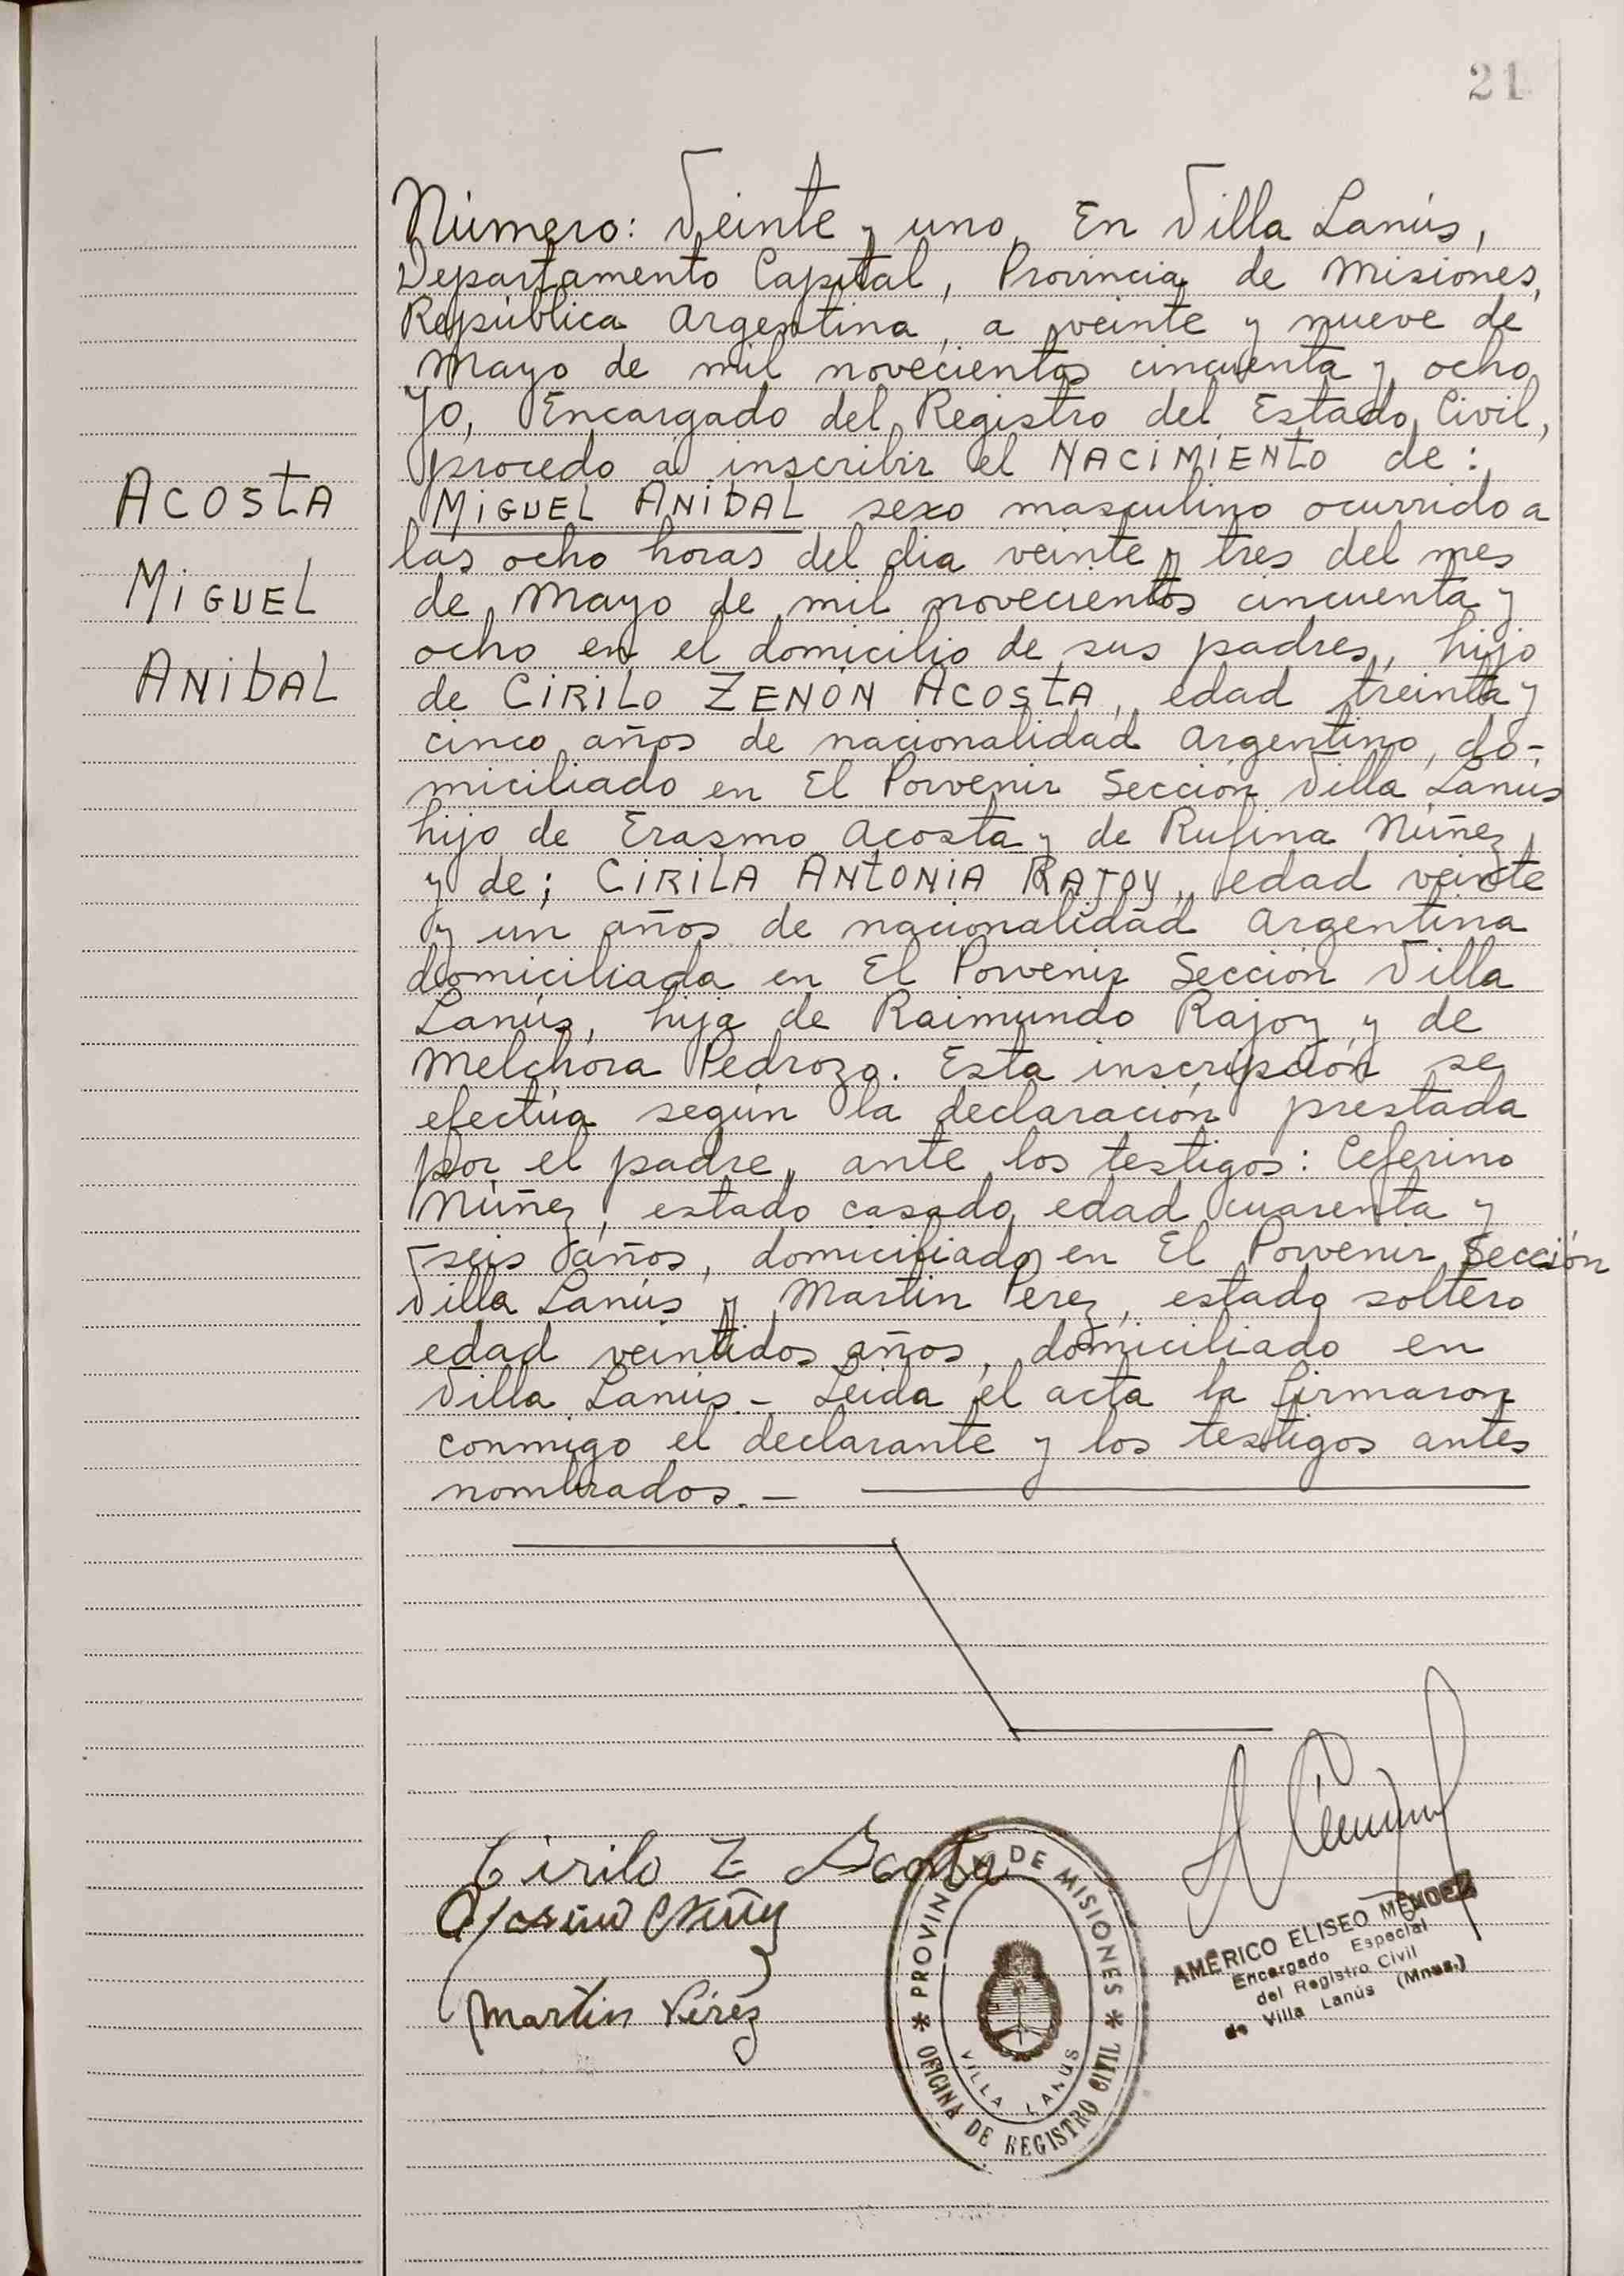 21
Número: Veinte y uno. En Villa Lanús,
Departamento Capital, Provincia de Misiones,
República Argentina, a veinte y nueve de
Mayo de mil novecientos cincuenta y ocho
Yo, Encargado del Registro del Estado Civil,
procedo a inscribir el NACIMIENTO de:
ACOSTA
MIGUEL
ANIBAL
MIGUEL ANIBAL sexo masculino ocurrido a
las ocho horas del dia veinte y tres del mes
de Mayo de mil novecientos cincuenta y
ocho en el domicilio de sus padres, hijo
de CIRILO ZENÓN ACOSTA, edad treinta y
cinco años de nacionalidad Argentino, do-
miciliado en El Porvenir Sección Villa Lanús
hijo de Erasmo Acosta y de Rufina Núñez,
y de; CIRILA ANTONIA RAJOY, edad veinte
y un años de nacionalidad Argentina
domiciliada en El Porvenir Sección Villa
Lanús, hija de Raimundo Rajoy y de
Melchora Pedrozo. Esta inscripción se
efectúa según la declaración prestada
por el padre, ante los testigos: Ceferino
Núñez, estado casado, edad cuarenta y
seis años, domiciliado en El Porvenir Sección
Villa Lanús y Martin Perez, estado soltero
edad veintidos años, domiciliado en
Villa Lanús.- Leida el acta la firmaron
conmigo el declarante y los testigos antes
nombrados.-
Cirilo Z Acosta
Martin Pérez
PROVINCIA DE MISIONES
OFICINA DE REGISTRO CIVIL
VILLA LANUS
AMÉRICO ELISEO MÉNDEZ
Encargado Especial
del Registro Civil
de Villa Lanús (Mnes.)